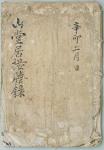 辛卯二月日
山堂居巡營錄